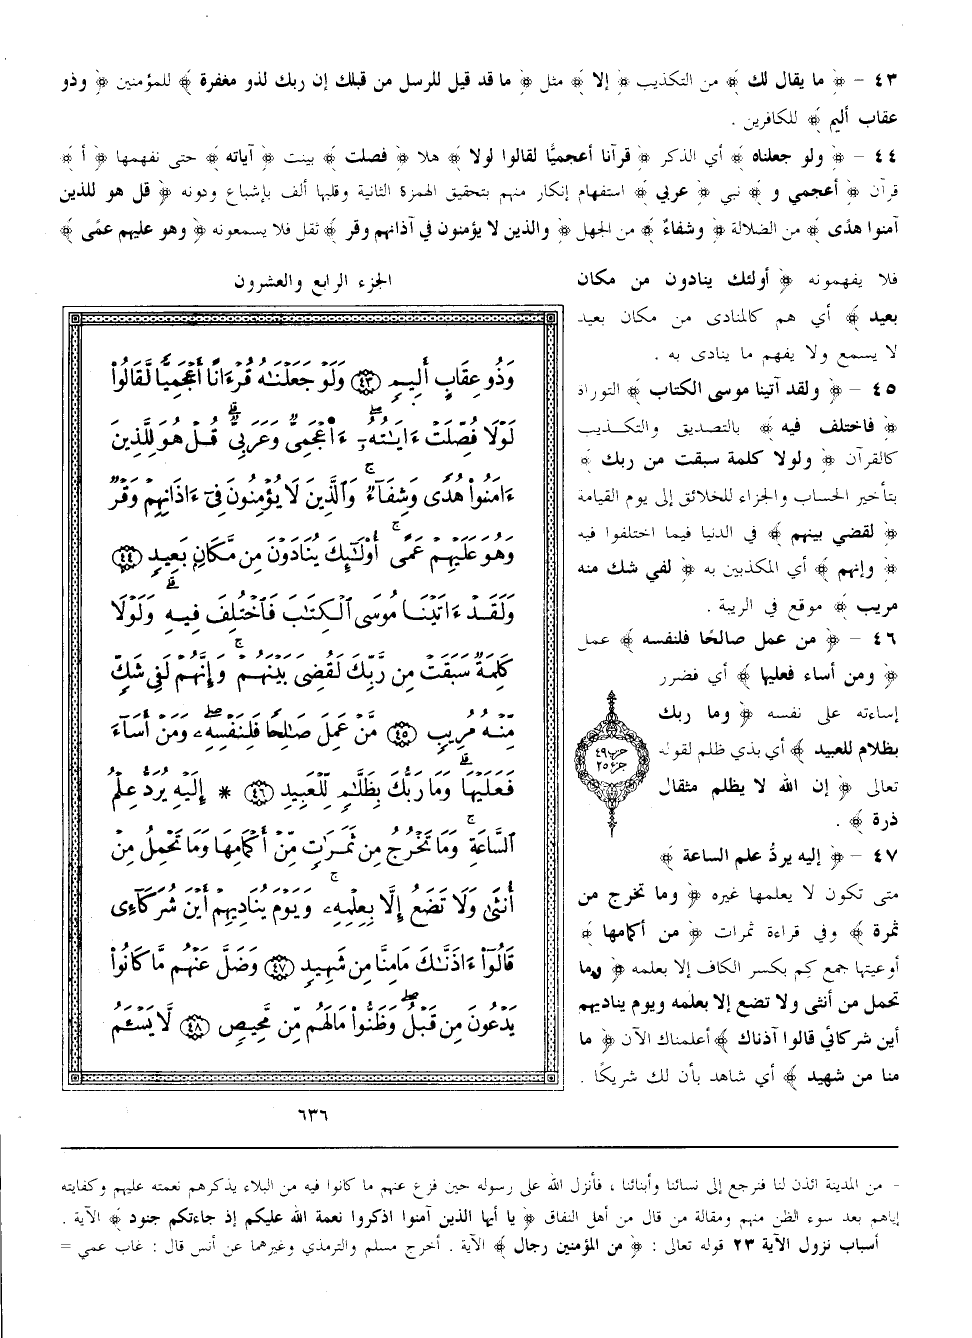 ٤٣ – ﴿ ما يقال لك ﴾ من التكذيب ﴿ إلا ﴾ مثل ﴿ ما قد قيل للرسل من قبلك إن ربك لذو مغفرة ﴾ للمؤمنين ﴿ وذو
عقاب أليم ﴾ للكافرين .
٤٤ – ﴿ ولو جعلناه ﴾ أي الذكر ﴿ قرآنا أعجميًّا لقالوا لولا ﴾ هلا ﴿ فصلت ﴾ بينت ﴿ آياته ﴾ حتى نفهمها ﴿ أ ﴾
قرآن ﴿ أعجمي و ﴾ نبي ﴿ عربي ﴾ استفهام إنكار منهم بتحقيق الهمزة الثانية وقلبها ألف بإشباع ودونه ﴿ قل هو للذين
آمنوا هدًى ﴾ من الضلالة ﴿ وشفاءٌ ﴾ من الجهل ﴿ والذين لا يؤمنون في آذانهم وقر ﴾ ثقل فلا يسمعونه ﴿ وهو عليهم عمًى ﴾
فلا يفهمونه ﴿ أولئك ينادون من مكان
بعيد ﴾ أي هم كالمنادى من مكان بعيد
لا يسمع ولا يفهم ما ينادى به .
٤٥ – ﴿ ولقد آتينا موسى الكتاب ﴾ التوراة
﴿ فاختلف فيه ﴾ بالتصديق والتكذيب
كالقرآن ﴿ ولولا كلمة سبقت من ربك ﴾
بتأخير الحساب والجزاء للخلائق إلى يوم القيامة
﴿ لقضي بينهم ﴾ في الدنيا فيما اختلفوا فيه
﴿ وإنهم ﴾ أي المكذبين به ﴿ لفي شك منه
مريب ﴾ موقع في الريبة .
٤٦ – ﴿ من عمل صالحًا فلنفسه ﴾ عمل
﴿ ومن أساء فعليها ﴾ أي فضرر
إساءته على نفسه ﴿ وما ربك
بظلام للعبيد ﴾ أي بذي ظلم لقوله
تعالى ﴿ إن الله لا يظلم مثقال
ذرة ﴾ .
٤٧ – ﴿ إليه يردُّ علم الساعة ﴾
متى تكون لا يعلمها غيره ﴿ وما تخرج من
ثمرة ﴾ وفي قراءة ثمرات ﴿ من أكمامها ﴾
أوعيتها جمع كِم بكسر الكاف إلا بعلمه ﴿ وما
تحمل من أنثى ولا تضع إلا بعلمه ويوم يناديهم
أين شركائي قالوا آذناك ﴾ أعلمناك الآن ﴿ ما
منا من شهيد ﴾ أي شاهد بأن لك شريكًا .
حزب ٤٩
جزء ٢٥
الجزء الرابع والعشرون
وَذُو عِقَابٍ أَلِيمٍ ٤٣ وَلَوْ جَعَلْنَٰهُ قُرْءَانًا أَعْجَمِيًّا لَّقَالُوا۟
لَوْلَا فُصِّلَتْ ءَايَٰتُهُۥٓ ۖ ءَا۬عْجَمِىٌّ وَعَرَبِىٌّ ۗ قُلْ هُوَ لِلَّذِينَ
ءَامَنُوا۟ هُدًى وَشِفَآءٌ ۚ وَالَّذِينَ لَا يُؤْمِنُونَ فِىٓ ءَاذَانِهِمْ وَقْرٌ
وَهُوَ عَلَيْهِمْ عَمًى ۚ أُو۟لَٰٓئِكَ يُنَادَوْنَ مِن مَّكَانٍۭ بَعِيدٍ ٤٤
وَلَقَدْ ءَاتَيْنَا مُوسَى ٱلْكِتَٰبَ فَٱخْتُلِفَ فِيهِ ۗ وَلَوْلَا
كَلِمَةٌ سَبَقَتْ مِن رَّبِّكَ لَقُضِىَ بَيْنَهُمْ ۚ وَإِنَّهُمْ لَفِى شَكٍّ
مِّنْهُ مُرِيبٍ ٤٥ مَّنْ عَمِلَ صَٰلِحًا فَلِنَفْسِهِۦ ۖ وَمَنْ أَسَآءَ
فَعَلَيْهَا ۗ وَمَا رَبُّكَ بِظَلَّٰمٍ لِّلْعَبِيدِ ٤٦ * إِلَيْهِ يُرَدُّ عِلْمُ
ٱلسَّاعَةِ ۚ وَمَا تَخْرُجُ مِن ثَمَرَٰتٍ مِّنْ أَكْمَامِهَا وَمَا تَحْمِلُ مِنْ
أُنثَىٰ وَلَا تَضَعُ إِلَّا بِعِلْمِهِۦ ۚ وَيَوْمَ يُنَادِيهِمْ أَيْنَ شُرَكَآءِى
قَالُوٓا۟ ءَاذَنَّٰكَ مَامِنَّا مِن شَهِيدٍ ٤٧ وَضَلَّ عَنْهُم مَّا كَانُوا۟
يَدْعُونَ مِن قَبْلُ ۖ وَظَنُّوا۟ مَالَهُم مِّن مَّحِيصٍ ٤٨ لَّا يَسْـَٔمُ
٦٣٦
- من المدينة ائذن لنا فنرجع إلى نسائنا وأبنائنا ، فأنزل الله على رسوله حين فزع عنهم ما كانوا فيه من البلاء يذكرهم نعمته عليهم وكفايته
إياهم بعد سوء الظن منهم ومقالة من قال من أهل النفاق ﴿ يا أيها الذين آمنوا اذكروا نعمة الله عليكم إذ جاءتكم جنود ﴾ الآية .
أسباب نزول الآية ٢٣ قوله تعالى : ﴿ من المؤمنين رجال ﴾ الآية . أخرج مسلم والترمذي وغيرهما عن أنس قال : غاب عمي =